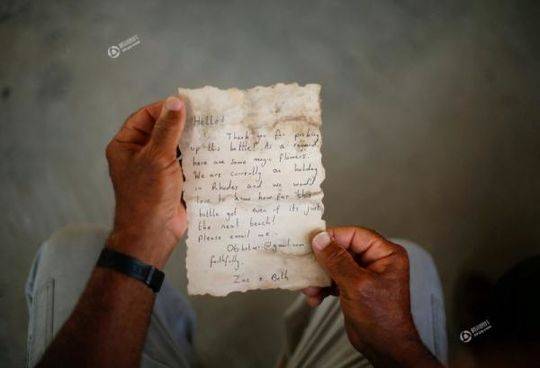 Hello!
Thank you for picking
up this bottle! As a reward
here are some magic flowers.
We are currently on holiday
in Rhodes and we would
love to know how far this
bottle got even if its just
the next beach!
Please email me -
@gmail.com
faithfully.
Zac + Beth